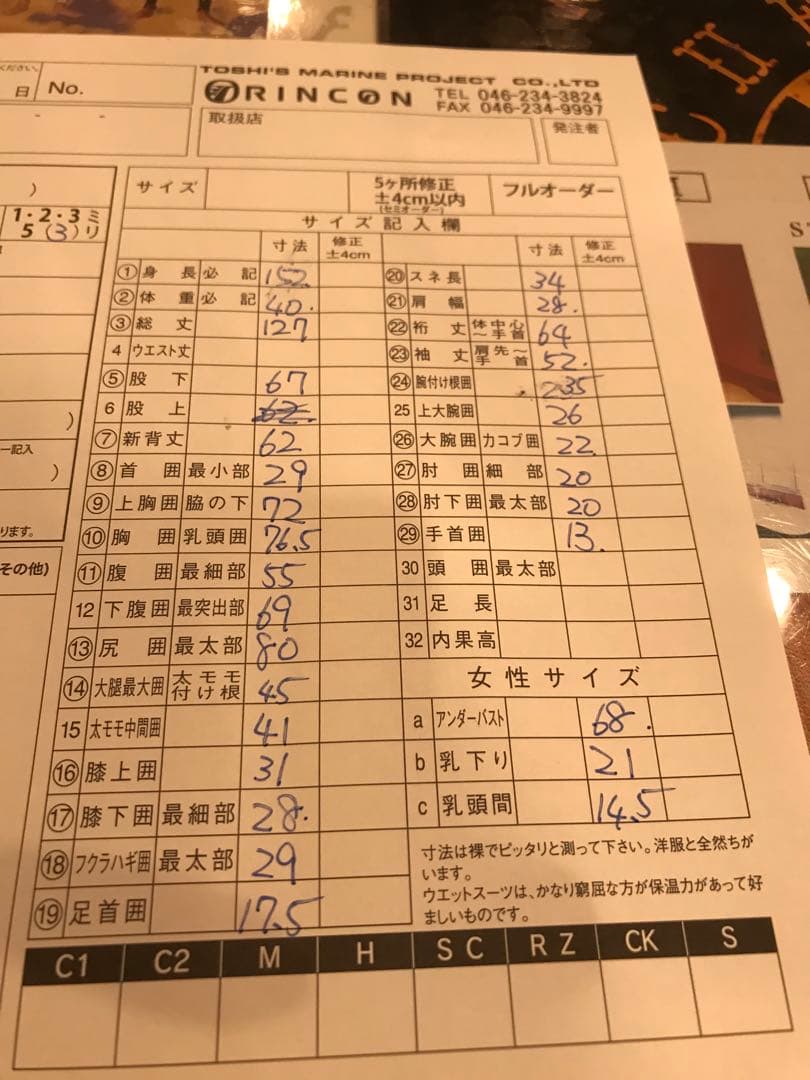 TOSHI'S MARINE PROJECT CO.,LTD
RINCON TEL 046-234-3824
FAX 046-234-9997
ください。
日 No.
取扱店
発注者
- -
)
1・2・3 ミ
5 (3) リ
サイズ
5ヶ所修正
±4cm以内
(セミオーダー)
フルオーダー
サイズ記入欄
寸法 修正±4cm 寸法 修正±4cm
① 身長 必記 152
② 体重 必記 40.
③ 総丈 127
4 ウエスト丈
⑤ 股下 67
6 股上
⑦ 新背丈 62
⑧ 首囲 最小部 29
⑨ 上胸囲 脇の下 72
⑩ 胸囲 乳頭囲 76.5
⑪ 腹囲 最細部 55
12 下腹囲 最突出部 69
⑬ 尻囲 最太部 80
⑭ 大腿最大囲 太モモ付け根 45
15 太モモ中間囲 41
⑯ 膝上囲 31
⑰ 膝下囲 最細部 28.
⑱ フクラハギ囲 最太部 29
⑲ 足首囲 17.5
⑳ スネ長 34
㉑ 肩幅 28.
㉒ 裄丈 体中心～手首 64
㉓ 袖丈 肩先～手首 52.
㉔ 腕付け根囲 35
25 上大腕囲 26
㉖ 大腕囲 カコブ囲 22.
㉗ 肘囲 細部 20
㉘ 肘下囲 最太部 20
㉙ 手首囲 13.
30 頭囲 最太部
31 足長
32 内果高
女性サイズ
a アンダーバスト 68.
b 乳下り 21
c 乳頭間 14.5
寸法は裸でピッタリと測って下さい。洋服と全然ちが
います。
ウエットスーツは、かなり窮屈な方が保温力があって好
ましいものです。
)
ー記入
)
ります。
その他)
C1 C2 M H SC RZ CK S